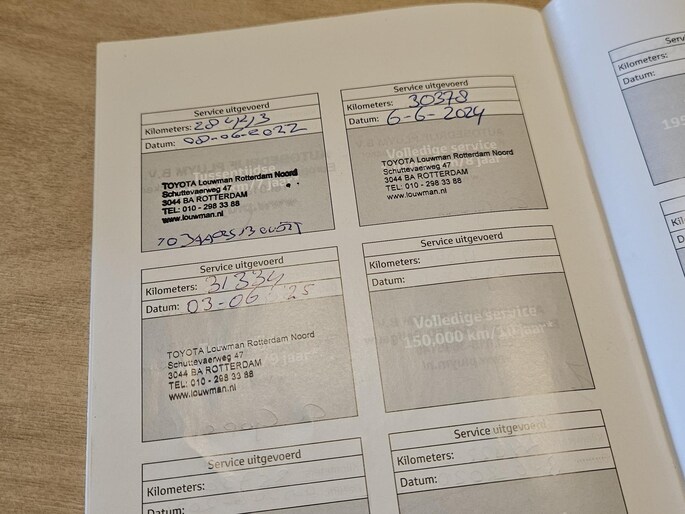 Service uitgevoerd
Kilometers: 28443
Datum: 08-06-2022
Tussentijdse
TOYOTA Louwman Rotterdam Noord
Schuttevaerweg 47
3044 BA ROTTERDAM
TEL: 010 - 298 33 88
www.louwman.nl
Service uitgevoerd
Kilometers: 30378
Datum: 6-6-2024
Volledige service
TOYOTA Louwman Rotterdam Noord
Schuttevaerweg 47
3044 BA ROTTERDAM
TEL: 010 - 298 33 88
www.louwman.nl
Service uitgevoerd
Kilometers: 31334
Datum: 03-06 25
TOYOTA Louwman Rotterdam Noord
Schuttevaerweg 47
3044 BA ROTTERDAM
TEL: 010 - 298 33 88
www.louwman.nl
Service uitgevoerd
Kilometers:
Datum:
Volledige service
150.000 km/10 jaar
Service uitgevoerd
Kilometers:
Datum:
Service uitgevoerd
Kilometers:
Datum:
Kilometers:
Datum: